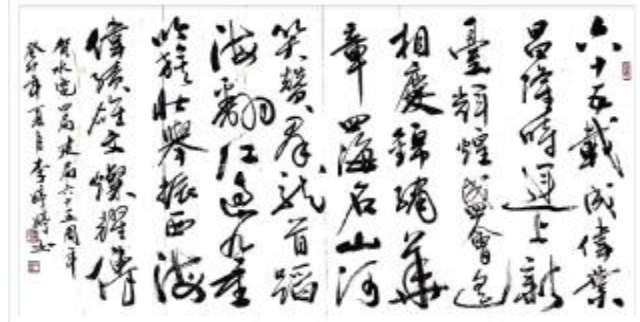 六十五载成偉業
昌隆時運上新
臺輝煌盛會遥
相慶錦繡華
章四海名山河
笑贊群龍首蹈
海翻江過九重
吟旌壮舉振西海
偉績雄文燦耀傳
贺水電四局建局六十五周年
癸卯年夏月李